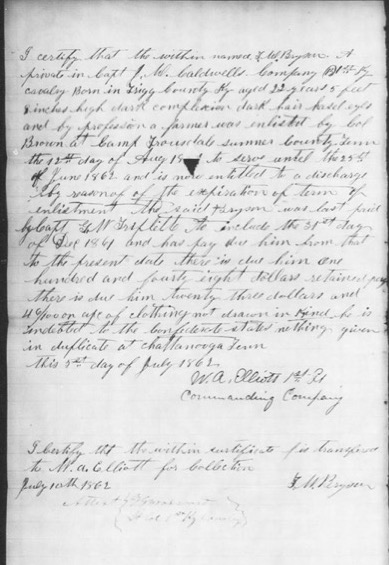 I certify that the within named F. W. Bryson. A
private in Capt J. W. Caldwells Company B 1st Ky
cavalry Born in Trigg County Ky aged 22 years 5 feet
8 inches high dark complexion dark hair hasel eyes
and by profession a farmer was enlisted by Col
Brown at Camp Trousdale sumner County Tenn
the 12th day of Aug to serve until the 23d
of June 1862 and is now entitled to a discharge
by reason of of the expiration of term of
enlistment The said Bryson was last paid
by Capt W Triplett to include the 31st day
of Dec 1861 and has pay due him from that
to the present date there is due him one
hundred and fourty eight dollars retained pay
there is due him twenty three dollars and
4 %oo on a/c of clothing not drawn in kind he is
indebted to the confederate states nothing given
in duplicate at chattanooga Tenn
this 3d day of July 1862
W. A. Elliott 1st Lt
Commanding Company
I certify tht the within certificate is transfered
to W. a. Elliott for Collection
July 10th 1862 F. W. Bryson
Attest